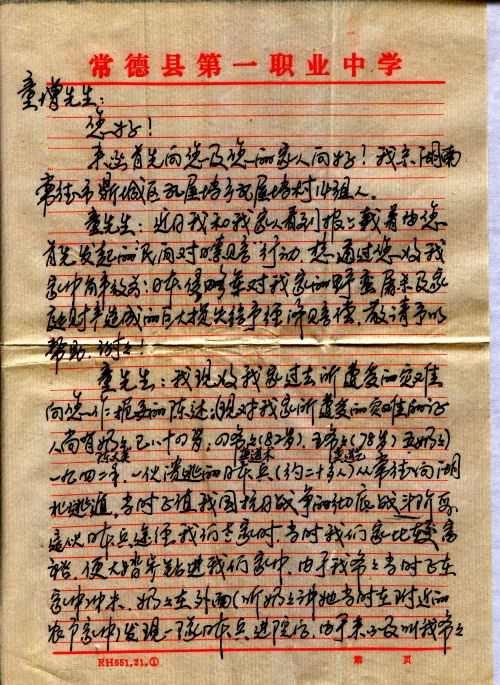 常德县第一职业中学
童增先生：
您好！
来函首先向您及您的家人问好！我系湖南
常德市鼎城区瓦屋垱乡瓦屋垱村八组人。
童先生：近日我和我家人看到报上载着由您
首先发起的民间对日索赔行动，想通过您将我
家中有事故为：日本侵略军对我家的野蛮屠杀及家
庭财产造成的巨大损失给予经济赔偿，敬请予以
帮助，谢谢！
童先生：我现将我家过去所遭受的灾难
向您作一报受的陈述：现对我家所遭受的灾难的证
人尚有奶奶已八十四岁，四爷爷(82岁)，五爷爷(78岁)五奶奶
一九四二年，一伙溃逃的日本兵(约二十多人)从常德向湖
北逃遁，当时正值我国抗日战争的彻底战斗阶段
这伙日本兵途径我们老家时，当时我们家比较富
裕，便大踏步跨进我们家中，由于我爷爷当时正在
家中冲米，奶奶在外面(听奶奶讲她当时在附近的
农户家中)发现一队日本兵进院后，由于来不及叫我爷爷
RH551.21.① 第 页